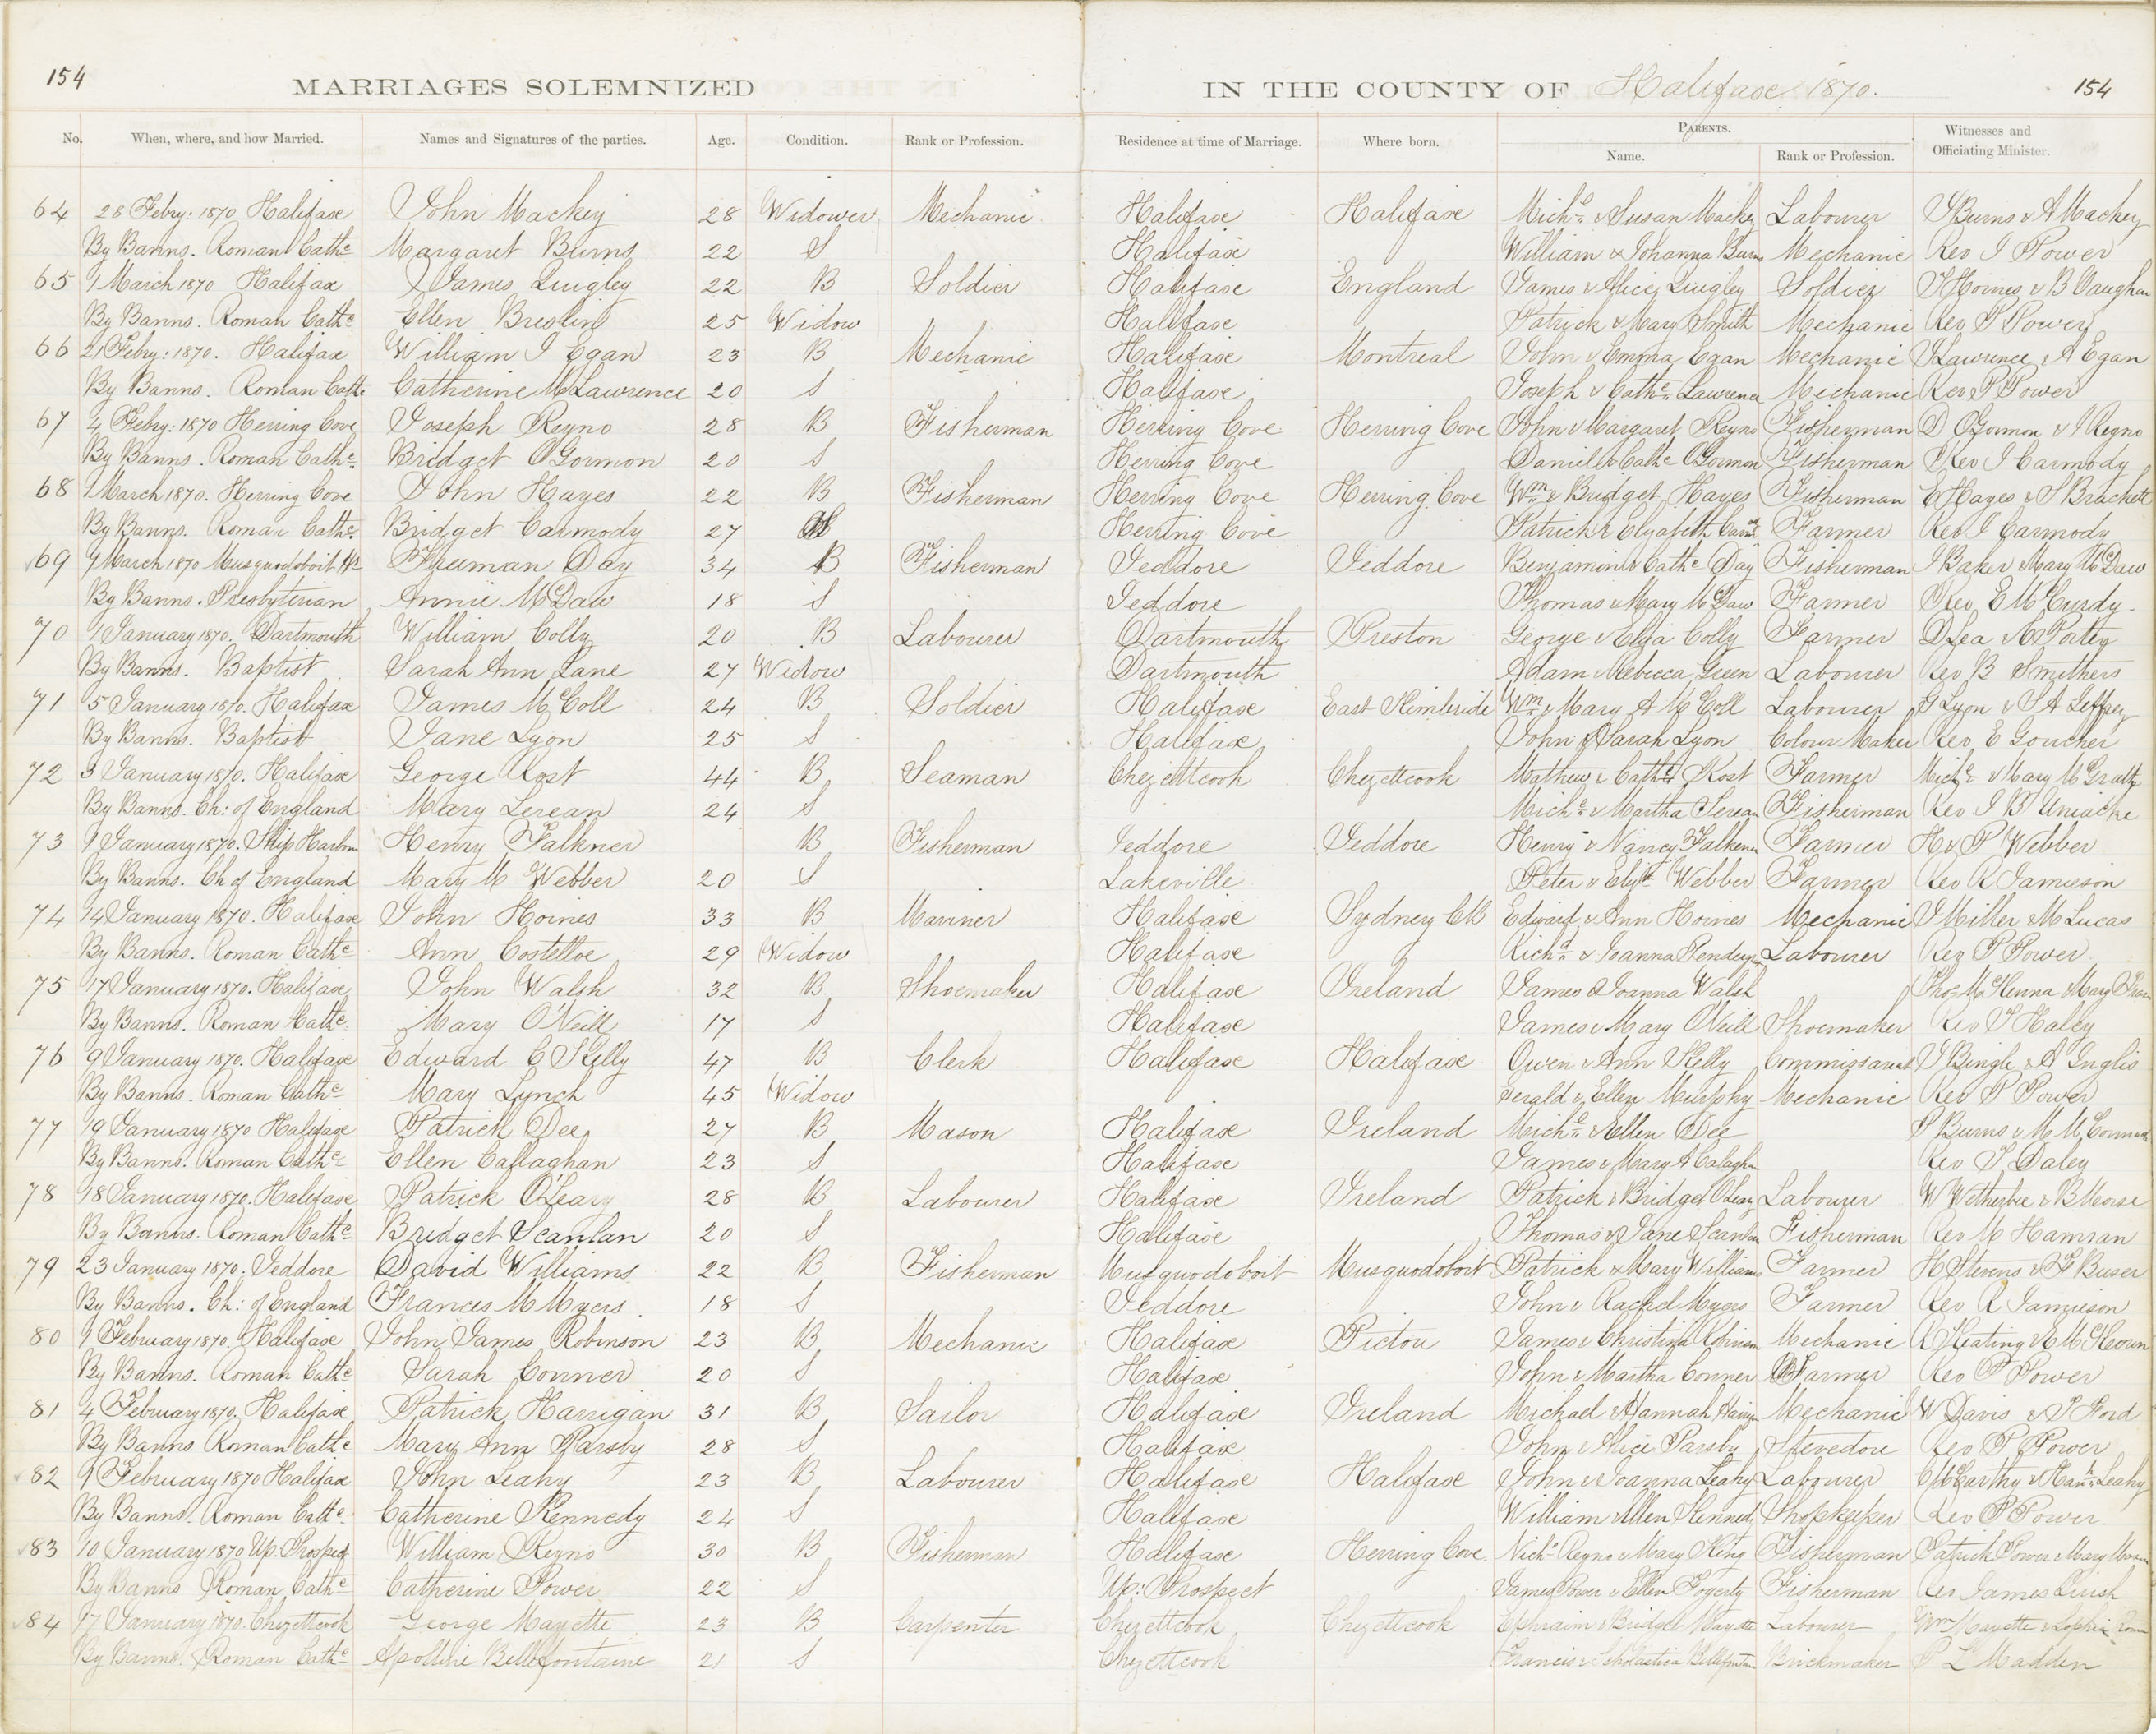 154
MARRIAGES SOLEMNIZED
IN THE COUNTY OF Halifax 1870.
154
No. When, where, and how Married. Names and Signatures of the parties. Age. Condition. Rank or Profession. Residence at time of Marriage. Where born. PARENTS. Name. Rank or Profession. Witnesses and Officiating Minister.
64 28 Febry: 1870 Halifax John Mackey 28 Widower Mechanic Halifax Halifax Michl & Susan Mackey Labourer J Burns & A Mackey
By Banns. Roman Cathc Margaret Burns 22 S Halifax William & Johanna Burns Mechanic Rev J Power
65 1 March 1870 Halifax James Quigley 22 B Soldier Halifax England James & Alice Quigley Soldier J Hoines & B Vaughan
By Banns. Roman Cathc Ellen Breslin 25 Widow Halifax Patrick & Mary Smith Mechanic Rev P Power
66 21 Febry: 1870. Halifax William J Egan 23 B Mechanic Halifax Montreal John & Emma Egan Mechanic J Lawrence & A Egan
By Banns. Roman Cathc Catherine M Lawrence 20 S Halifax Joseph & Cathne Lawrence Mechanic Rev P Power
67 4 Febry: 1870 Herring Cove Joseph Reyno 28 B Fisherman Herring Cove Herring Cove John & Margaret Reyno Fisherman D OGormon & J Reyno
By Banns. Roman Cathc Bridget OGormon 20 S Herring Cove Daniel & Cathe OGormon Fisherman Rev J Carmody
68 1 March 1870. Herring Cove John Hayes 22 B Fisherman Herring Cove Herring Cove Wm & Bridget Hayes Fisherman E Hayes & S Brackett
By Banns. Roman Cathc Bridget Carmody 27 S Herring Cove Patrick & Elizabeth Farmer Rev J Carmody
69 9 March 1870 Musquodoboit Freeman Day 34 B Fisherman Jeddore Jeddore Benjamin & Cathe Day Fisherman J Baker Mary McDaw
By Banns. Presbyterian Annie McDaw 18 S Jeddore Thomas & Mary McDaw Farmer Rev E McCurdy
70 1 January 1870. Dartmouth William Colly 20 B Labourer Dartmouth Preston George & Eliza Colly Farmer D Lea &
By Banns. Baptist Sarah Ann Lane 27 Widow Dartmouth Adam & Rebecca Green Labourer Rev B Smithers
71 5 January 1870. Halifax James McColl 24 B Soldier Halifax East Wm & Mary A McColl Labourer G Lyon & S A Jeffrey
By Banns. Baptist Jane Lyon 25 S Halifax John & Sarah Lyon Colour Maker Rev E Goucher
72 3 January 1870. Halifax George Rost 44 B Seaman Chezettcook Chezettcook Mathew & Cathe Rost Farmer Michl & Mary McGrath
By Banns. Ch: of England Mary Serean 24 S Michl & Martha Serean Fisherman Rev J B Uniacke
73 9 January 1870. Ship Harbour Henry Falkner B Fisherman Jeddore Jeddore Henry & Nancy Falkener Farmer H & P Webber
By Banns. Ch of England Mary M Webber 20 S Lakeville Peter & Elizth Webber Farmer Rev R Jamieson
74 14 January 1870. Halifax John Hoines 33 B Mariner Halifax Sydney CB Edward & Ann Hoines Mechanic J Miller & M Lucas
By Banns. Roman Cathc Ann Costelloe 29 Widow Halifax Richd & Joanna Labourer Rev P Power
75 17 January 1870. Halifax John Walsh 32 B Shoemaker Halifax Ireland James & Joanna Walsh Thos McKenna Mary
By Banns. Roman Cathc. Mary O'Neill 17 S Halifax James & Mary ONeill Shoemaker Rev T Haley
76 9 January 1870. Halifax Edward C Kelly 47 B Clerk Halifax Halifax Owen & Ann Kelly Commissariat J Bingle & A Inglis
By Banns. Roman Cathc Mary Lynch 45 Widow Halifax Gerald & Ellen Murphy Mechanic Rev P Power
77 19 January 1870 Halifax Patrick Dee 27 B Mason Halifax Ireland Michl & Ellen Dee P Burns &
By Banns. Roman Cathc Ellen Callaghan 23 S Halifax James & Mary A Calaghan Rev T Daley
78 18 January 1870. Halifax Patrick O'Leary 28 B Labourer Halifax Ireland Patrick & Bridget OLeary Labourer W Wetherbee & B Morse
By Banns. Roman Cathc Bridget Scanlan 20 S Halifax Thomas & Jane Scanlan Fisherman Rev M Hannan
79 23 January 1870. Jeddore David Williams 22 B Fisherman Musquodoboit Musquodoboit Patrick & Mary Williams Farmer H Stevens & F Buser
By Banns. Ch: of England Frances M Myers 18 S Jeddore John & Rachel Myers Farmer Rev R Jamieson
80 1 February 1870. Halifax John James Robinson 23 B Mechanic Halifax Pictou James & Christina Robinson Mechanic R Keating & E McKeown
By Banns. Roman Cathc Sarah Conner 20 S Halifax John & Martha Conner Farmer Rev P Power
81 4 February 1870. Halifax Patrick Harrigan 31 B Sailor Halifax Ireland Michael & Hannah Harrigan Mechanic W Davis & P Ford
By Banns. Roman Cathc Mary Ann Parsby 28 S Halifax John & Alice Parsby Stevedore Rev P Power
82 9 February 1870 Halifax John Leahy 23 B Labourer Halifax Halifax John & Joanna Leahy Labourer C McCarthy & Hanh Leahy
By Banns. Roman Cathc. Catherine Kennedy 24 S Halifax William & Ellen Kennedy Shopkeeper Rev P Power
83 10 January 1870 Up. Prospect William Reyno 30 B Fisherman Halifax Herring Cove. Nichs Reyno & Mary King Fisherman Patrick Power & Mary
By Banns Roman Cathc Catherine Power 22 S Up: Prospect James Power & Ellen Fogerty Fisherman Rev James Quish
84 17 January 1870. Chezettcook George Mayette 23 B Carpenter Chezettcook Chezettcook Ephraim & Bridget Mayette Labourer Wm Mayette & Sophia
By Banns. Roman Cathc Apolline Bellefontaine 21 S Chezettcook Francis & Scholastica Bellefontaine Brickmaker P L Madden